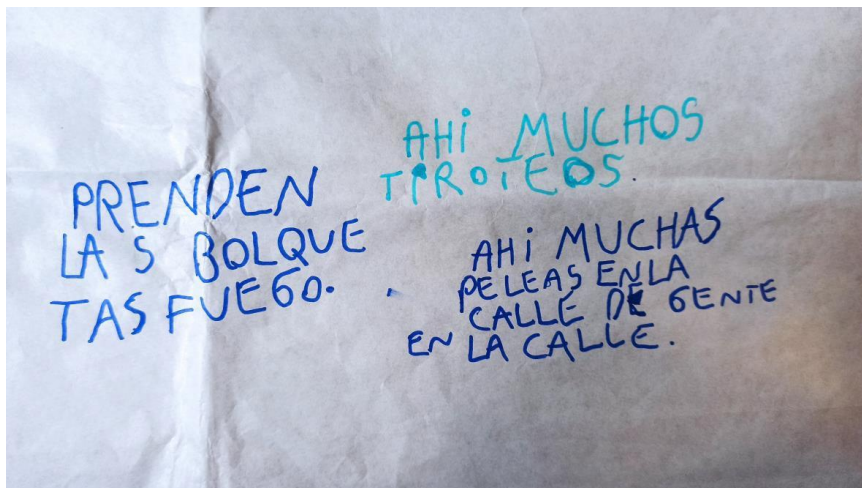 PRENDEN
LA S BOLQUE
TAS FUEGO.
AHi MUCHOS
TiROTEOS.
AHi MUCHAS
PELEAS ENLA
CALLE DE GENTE
EN LA CALLE.